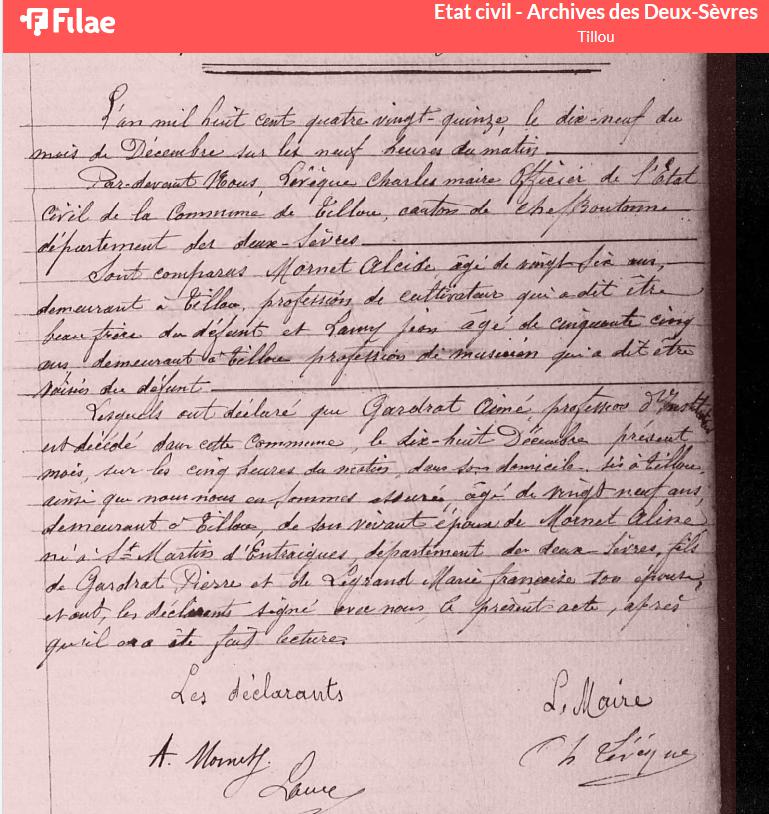 Filae
Etat civil - Archives des Deux-Sèvres
Tillou
L'an mil huit cent quatre vingt-quinze, le dix-neuf du
mois de Décembre sur les neuf heures du matin
Par-devant Nous, Lévêque Charles maire Officier de l'Etat
civil de la Commune de Tillou, canton de Chef Boutonne
département des deux-Sèvres
Sont comparus Mornet Alcide, âgé de vingt six ans,
demeurant à Tillou, profession de cultivateur qui a dit être
beau frère du défunt et Lamy jean âgé de cinquante cinq
ans, demeurant à Tillou profession de musicien qui a dit être
voisin du défunt
Lesquels ont déclaré que Gardrat Aimé, profession d'Instituteur
est décédé dans cette Commune, le dix-huit Décembre présent
mois, sur les cinq heures du matin, dans son domicile, sis à Tillou,
ainsi que nous nous en sommes assuré, âgé de vingt neuf ans,
demeurant à Tillou, de son vivant époux de Mornet Aline
né à St Martin d'Entraigues, département des deux-Sèvres, fils
de Gardrat Pierre et de Legrand Marie françoise son épouse,
et ont, les déclarants signé avec nous, le présent acte, après
qu'il en a été fait lecture
Les déclarants
Le Maire
A. Mornet
Ch Lévêque